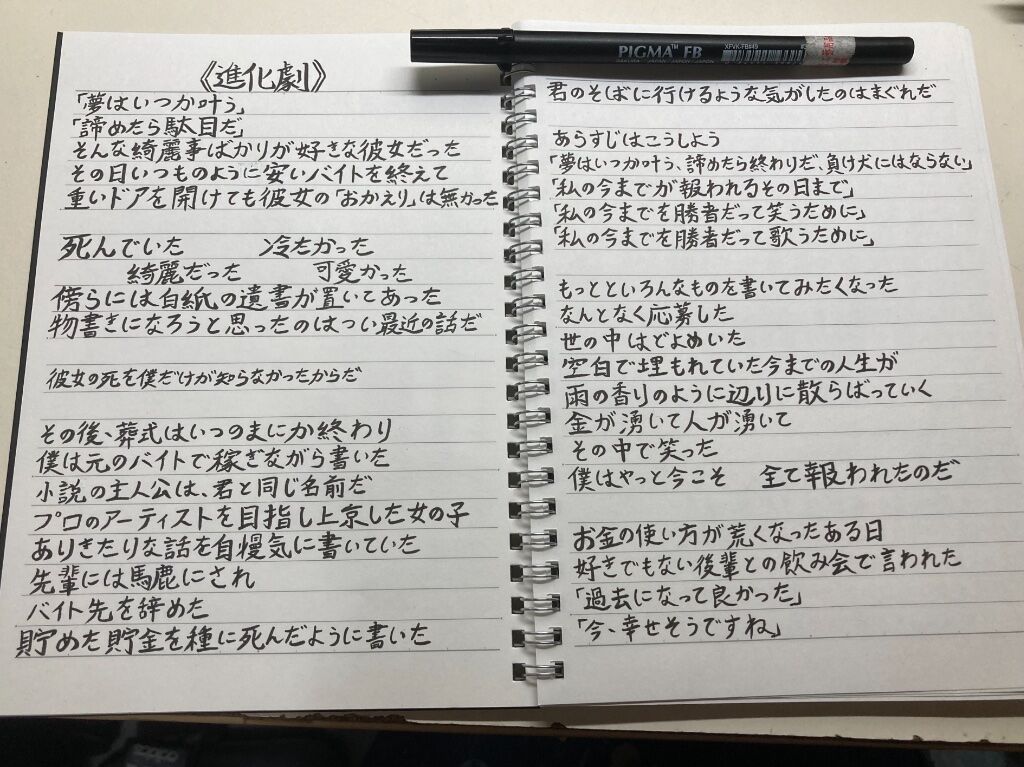 《進化劇》
「夢はいつか叶う」
「諦めたら駄目だ」
そんな綺麗事ばかりが好きな彼女だった
その日いつものように安いバイトを終えて
重いドアを開けても彼女の「おかえり」は無かった
死んでいた 冷たかった
綺麗だった 可愛かった
傍らには白紙の遺書が置いてあった
物書きになろうと思ったのはつい最近の話だ
彼女の死を僕だけが知らなかったからだ
その後、葬式はいつのまにか終わり
僕は元のバイトで稼ぎながら書いた
小説の主人公は、君と同じ名前だ
プロのアーティストを目指し上京した女の子
ありきたりな話を自慢気に書いていた
先輩には馬鹿にされ
バイト先を辞めた
貯めた貯金を種に死んだように書いた
PIGMA™ FB
SAKURA JAPAN
XFVK-FB#49
君のそばに行けるような気がしたのはまぐれだ
あらすじはこうしよう
「夢はいつか叶う、諦めたら終わりだ、負け犬にはならない」
「私の今までが報われるその日まで」
「私の今までを勝者だって笑うために」
「私の今までを勝者だって歌うために」
もっといろんなものを書いてみたくなった
なんとなく応募した
世の中はどよめいた
空白で埋もれていた今までの人生が
雨の香りのように辺りに散らばっていく
金が湧いて人が湧いて
その中で笑った
僕はやっと今こそ 全て報われたのだ
お金の使い方が荒くなったある日
好きでもない後輩との飲み会で言われた
「過去になって良かった」
「今、幸せそうですね」